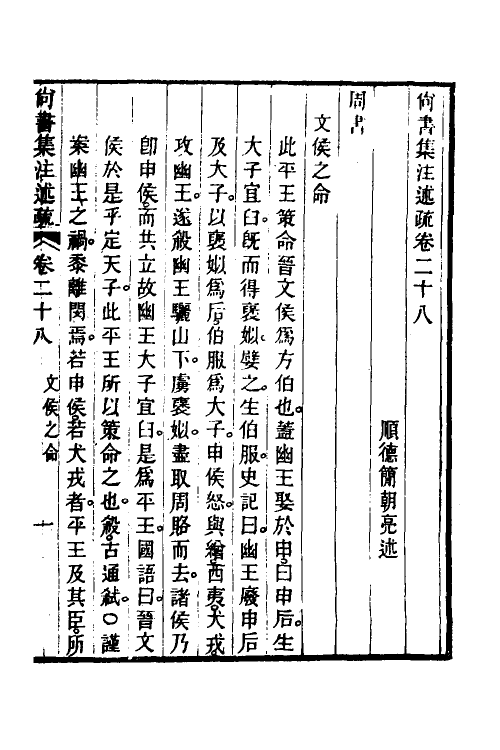 尙書集注述疏卷二十八
順德簡朝亮述
周書
文侯之命
此平王策命晉文侯爲方伯也。蓋幽王娶於申。曰申后。生
大子宜臼。旣而得襃姒。嬖之。生伯服。史記曰。幽王廢申后
及大子。以襃姒爲后。伯服爲大子。申侯怒。與繒西夷犬戎。
攻幽王。遂殺幽王驪山下。虜襃姒。盡取周賂而去。諸侯乃
卽申侯。而共立故幽王大子宜臼。是爲平王。國語曰。晉文
侯於是乎定天子。此平王所以策命之也。殺古通弑。○謹
案幽王之禍。黍離閔焉。若申侯。若犬戎者。平王及其臣。所
尙書集注述疏 卷二十八 文侯之命 一